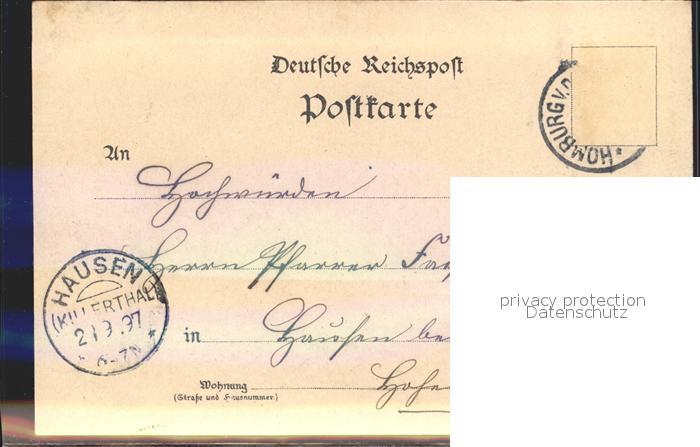 Deutsche Reichspost
Postkarte
HOMBURG V.D.
An
Hochwürden
Herrn Pfarrer
HAUSEN
(KILLERTHAL)
21 9 97
6-7N
privacy protection
Datenschutz
in Hausen be
Hohe
Wohnung
(Straße und Hausnummer.)